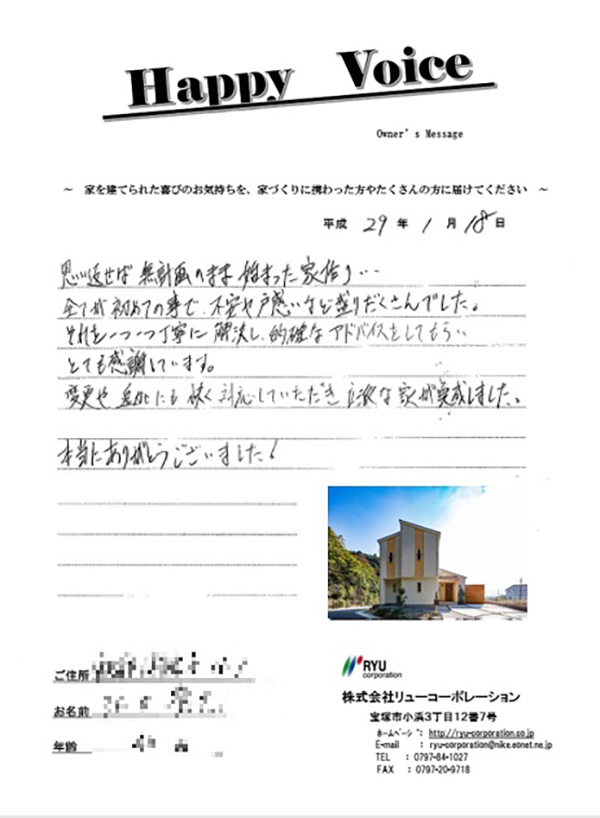 Happy Voice
Owner's Message
～ 家を建てられた喜びのお気持ちを、家づくりに携わった方やたくさんの方に届けてください ～
平成 29 年 1 月 18 日
思い返せば 無計画のまま 始まった 家作り…
全てが初めての事で、不安や戸惑いなど盛りだくさんでした。
それを一つ一つ丁寧に 解決し、的確な アドバイスをしてもらい
とても感謝しています。
変更や 追加にも 快く 対応していただき 立派な 家が完成しました。
本当にありがとうございました!
RYU
corporation
株式会社リューコーポレーション
宝塚市小浜3丁目12番7号
ホームページ: http://ryu-corporation.co.jp
E-mail : ryu-corporation@nike.eonet.ne.jp
TEL : 0797-84-1027
FAX : 0797-20-9718
ご住所
お名前
年齢